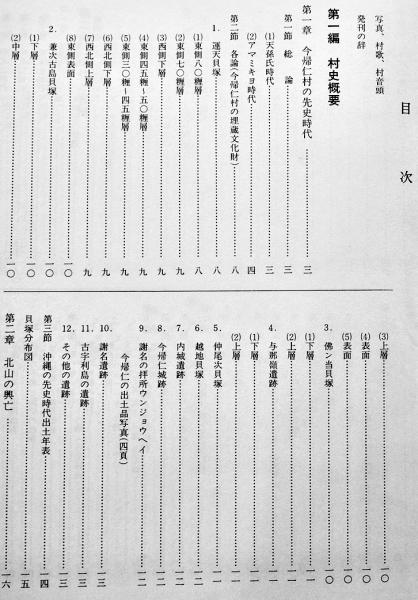 目次
写真、村歌、村音頭
発刊の辞
第一編 村史概要
第一章 今帰仁村の先史時代……三
第一節 総論……三
(1)天孫氏時代……三
(2)アマミキヨ時代……四
第二節 各論(今帰仁村の埋蔵文化財)……八
1. 運天貝塚……八
(1)東側八〇糎層……八
(2)東側七〇糎層……九
(3)西側下層……九
(4)東側四五糎〜五〇糎層……九
(5)東側三〇糎〜四五糎層……九
(6)西北側下層……九
(7)西北側上層……九
(8)東側表面……一〇
2. 兼次古島貝塚……一〇
(1)下層……一〇
(2)中層……一〇
(3)上層……一〇
(4)表面……一〇
(5)表面……一〇
3. 佛ン当貝塚……一〇
(1)下層……一一
(2)上層……一一
4. 与那嶺遺跡……一一
(1)下層……一一
(2)上層……一一
5. 仲尾次貝塚……一一
6. 越地貝塚……一一
7. 内城遺跡……一二
8. 今帰仁城遺跡……一二
9. 謝名の拝所ウンジョウヘイ……一二
今帰仁の出土品写真(四頁)
10. 謝名遺跡……一三
11. 古宇利島の遺跡……一三
12. その他の遺跡……一三
第三節 沖縄の先史時代出土年表……一四
貝塚分布図……一五
第二章 北山の興亡……一六